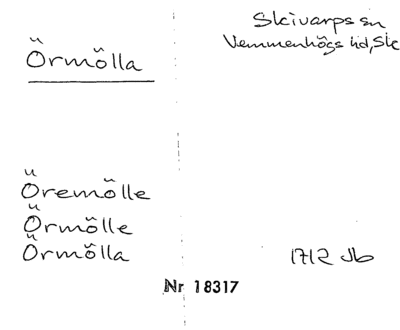 Örmölla
Skivarps sn
Vemmenhögs hd, Sk
Öremölle
Örmölle
Örmölla
1712 Jb
Nr 18317